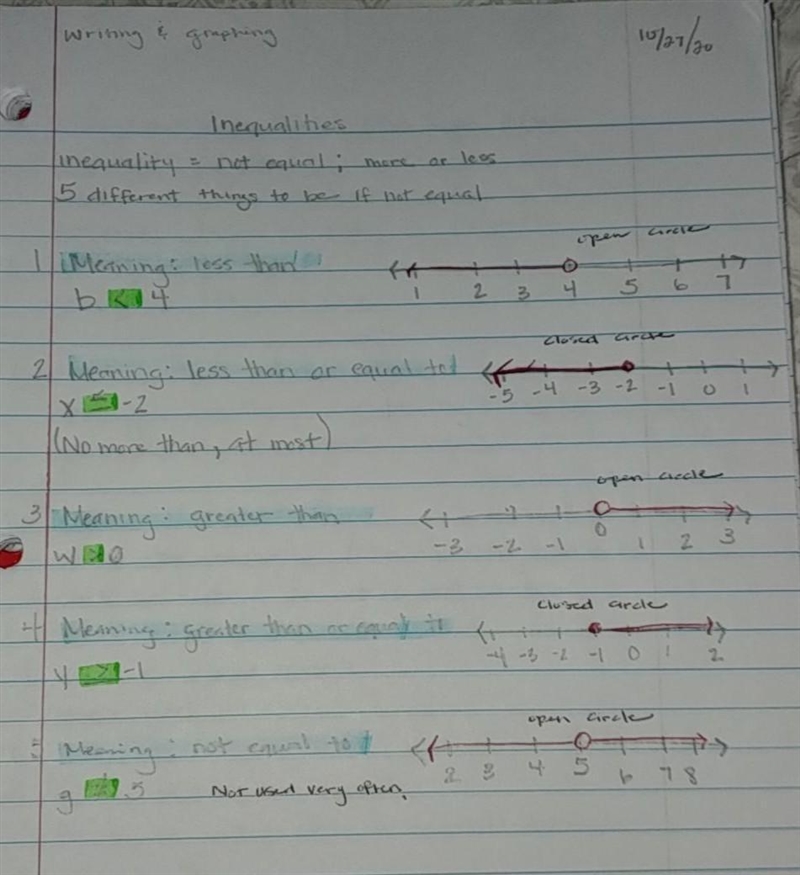 Writing & graphing
10/27/20
Inequalities
inequality = not equal; more or less
5 different things to be if not equal
open circle
1 Meaning: less than
1 2 3 4 5 6 7
b < 4
closed circle
2 Meaning: less than or equal to
-5 -4 -3 -2 -1 0 1
x ≤ -2
(No more than, at most)
open circle
3 Meaning: greater than
-3 -2 -1 0 1 2 3
w > 0
closed circle
4 Meaning: greater than or equal to
-4 -3 -2 -1 0 1 2
y ≥ -1
open circle
5 Meaning: not equal to
2 3 4 5 6 7 8
g ≠ 5 Not used very often.